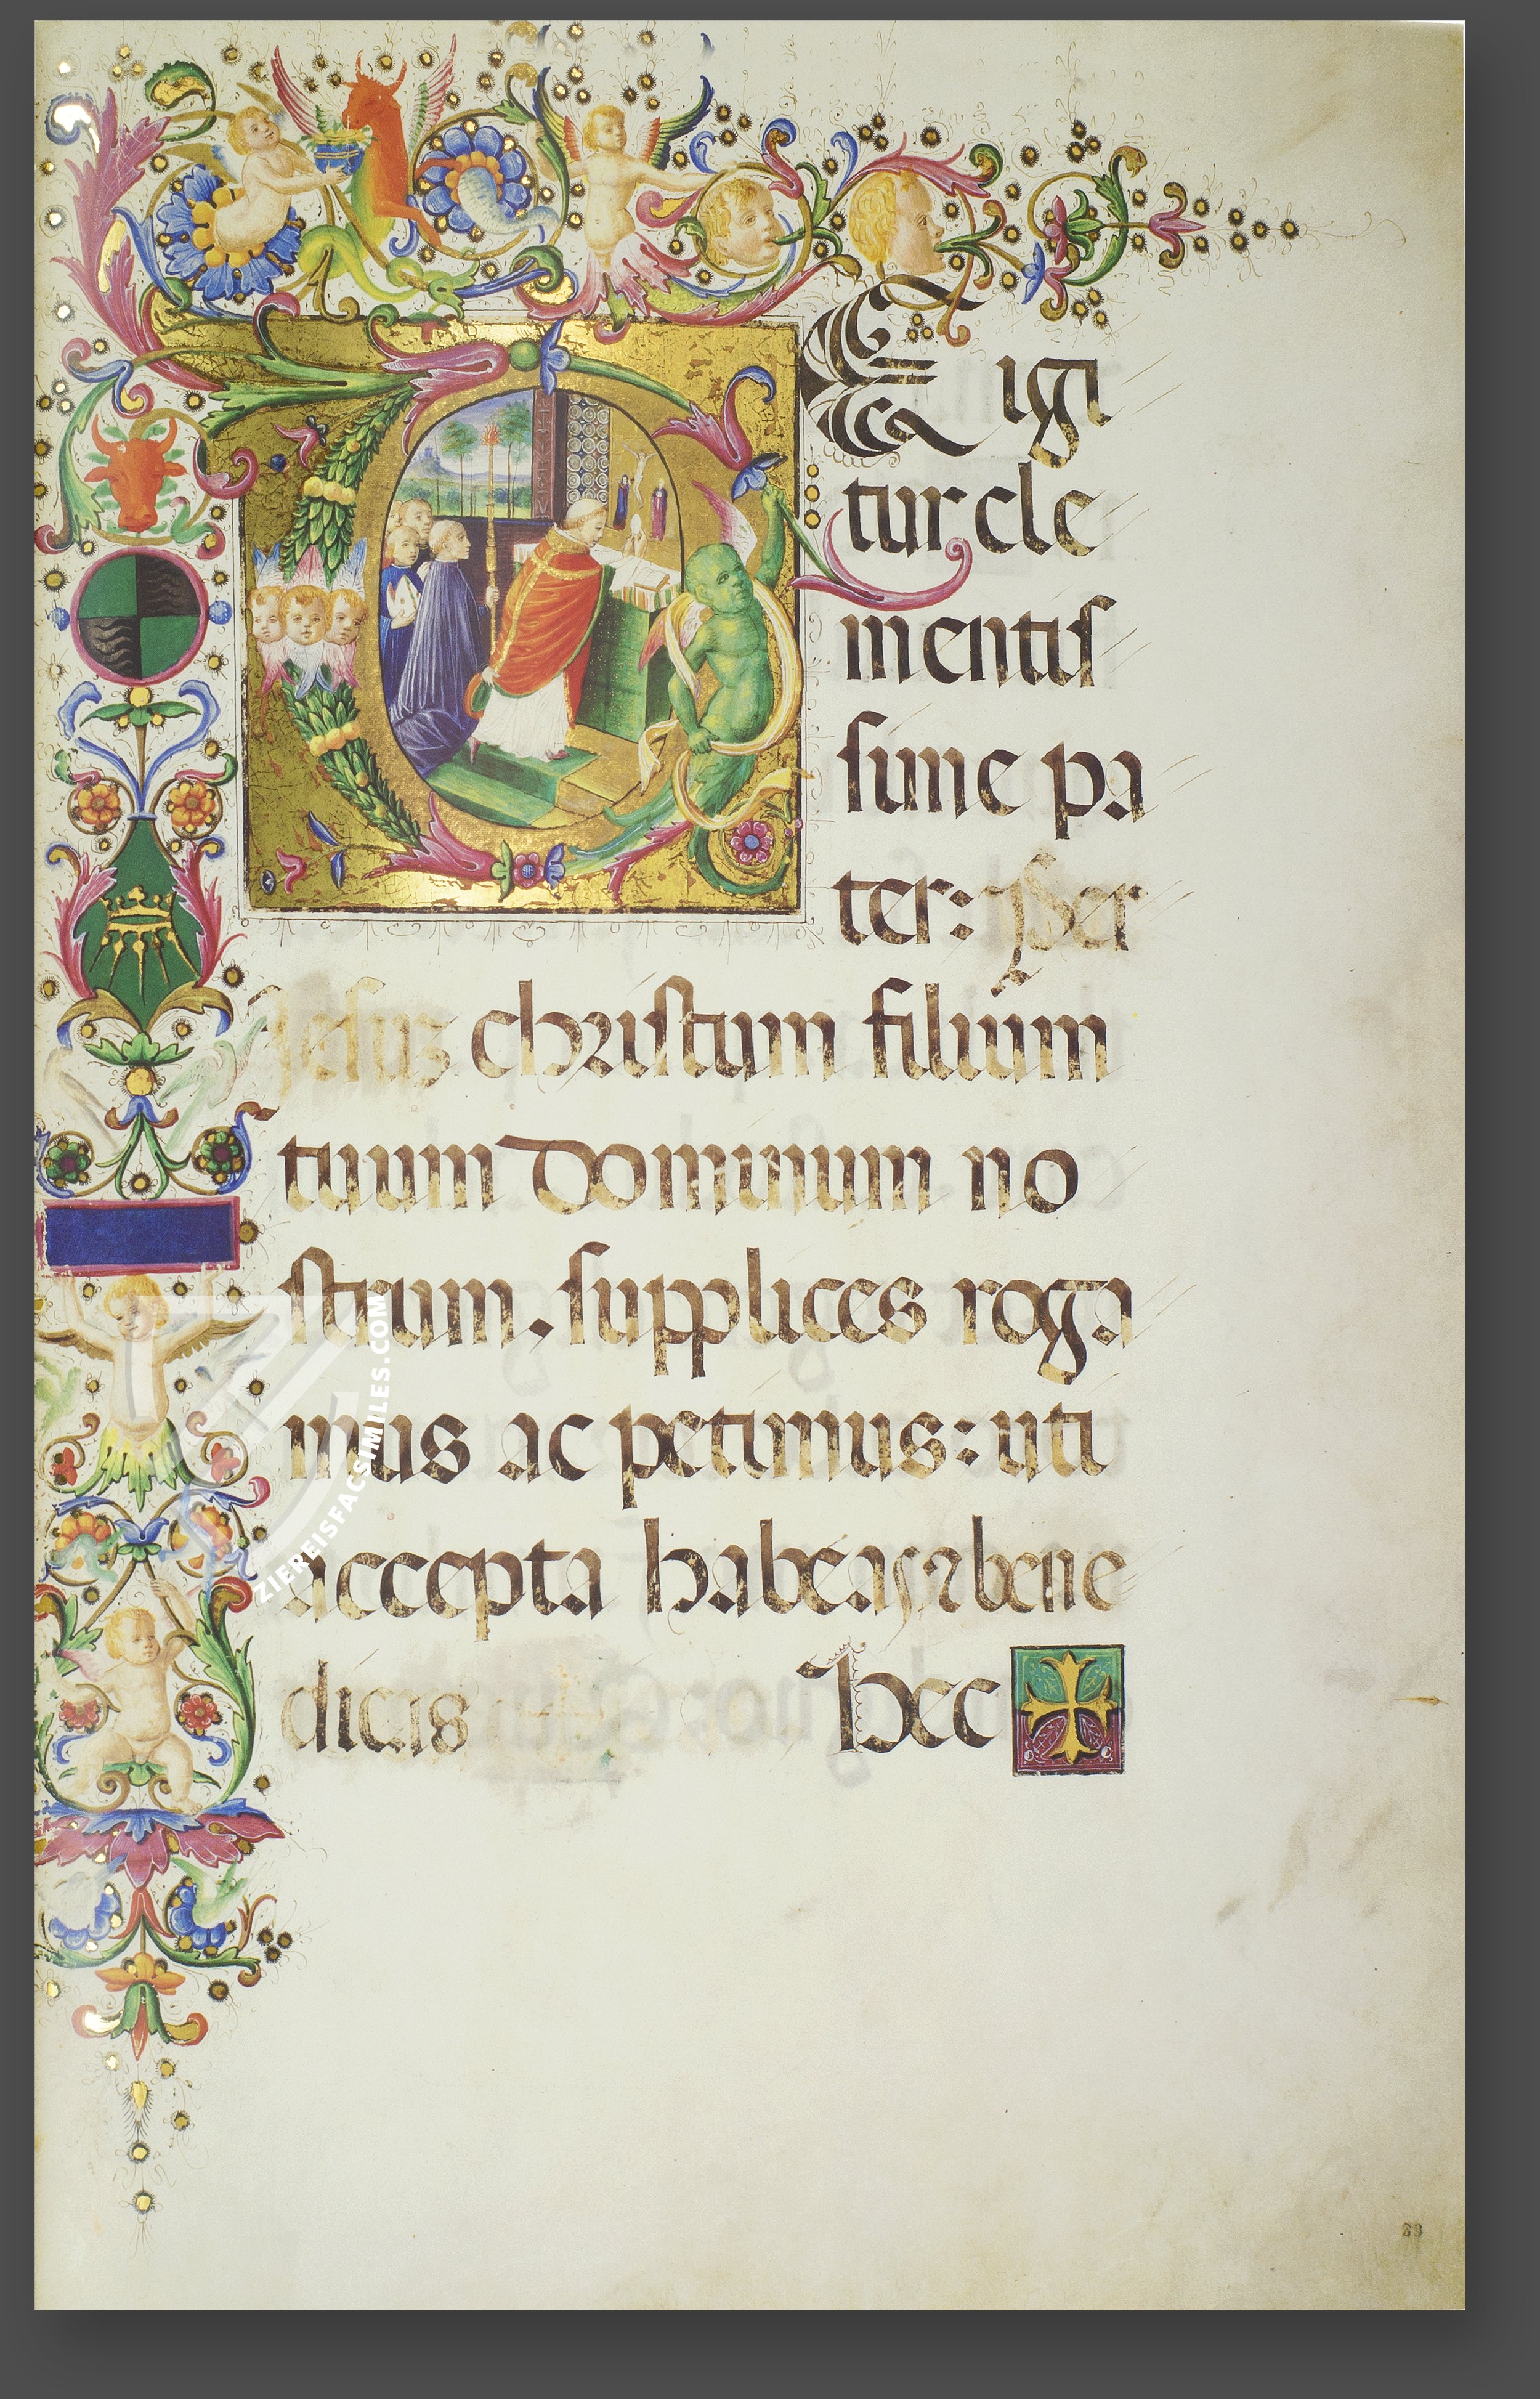 E igi
tur cle
mentis
sime pa
ter: per
Jesus christum filium
tuum dominum no
strum, supplices roga
mus ac petimus: uti
accepta habeas ⁊ bene
dicis hec
ZIEREISFACSIMILES.COM